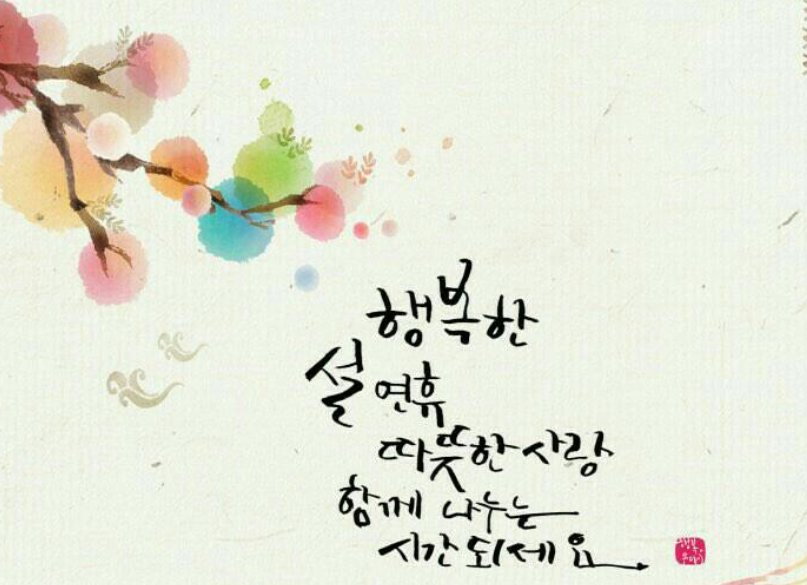 행복한
설 연휴
따뜻한 사랑
함께 나누는
시간 되세요